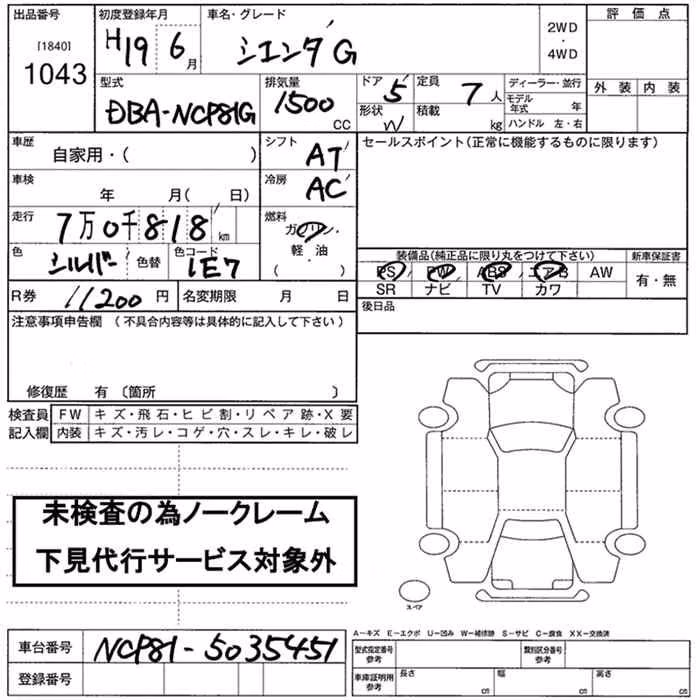 出品番号
[1840]
1043
初度登録年月
H19 6 月
車名・グレード
シエンタ G
2WD
・
4WD
評価点
外装 内装
型式
DBA-NCP81G
排気量
1500
CC
ドア 5
定員 7 人
形状 W
積載 kg
ディーラー・並行
モデル年式 年
ハンドル 左・右
車歴
自家用・( )
シフト AT
セールスポイント(正常に機能するものに限ります)
車検
年 月( 日)
冷房 AC
走行
7万0千818 km
燃料
ガソリン・
軽・油
( )
色
シルバー 色替
色コード
1E7
装備品(純正品に限り丸をつけて下さい)
新車保証書
PS PW ABS エアB AW
有・無
SR ナビ TV カワ
R券 11200 円
名変期限 月 日
後日品
注意事項申告欄 (不具合内容等は具体的に記入して下さい)
修復歴 有 〔箇所 〕
検査員 FW キズ・飛石・ヒビ割・リペア跡・X要
記入欄 内装 キズ・汚レ・コゲ・穴・スレ・キレ・破レ
未検査の為ノークレーム
下見代行サービス対象外
スペア
A−キズ E−エクボ U−凹み W−補修跡 S−サビ C−腐食 XX−交換済
車台番号 NCP81-5035451
型式指定番号
参考
類別区分番号
参考
登録番号
車庫証明用
参考
長さ cm
幅 cm
高さ cm